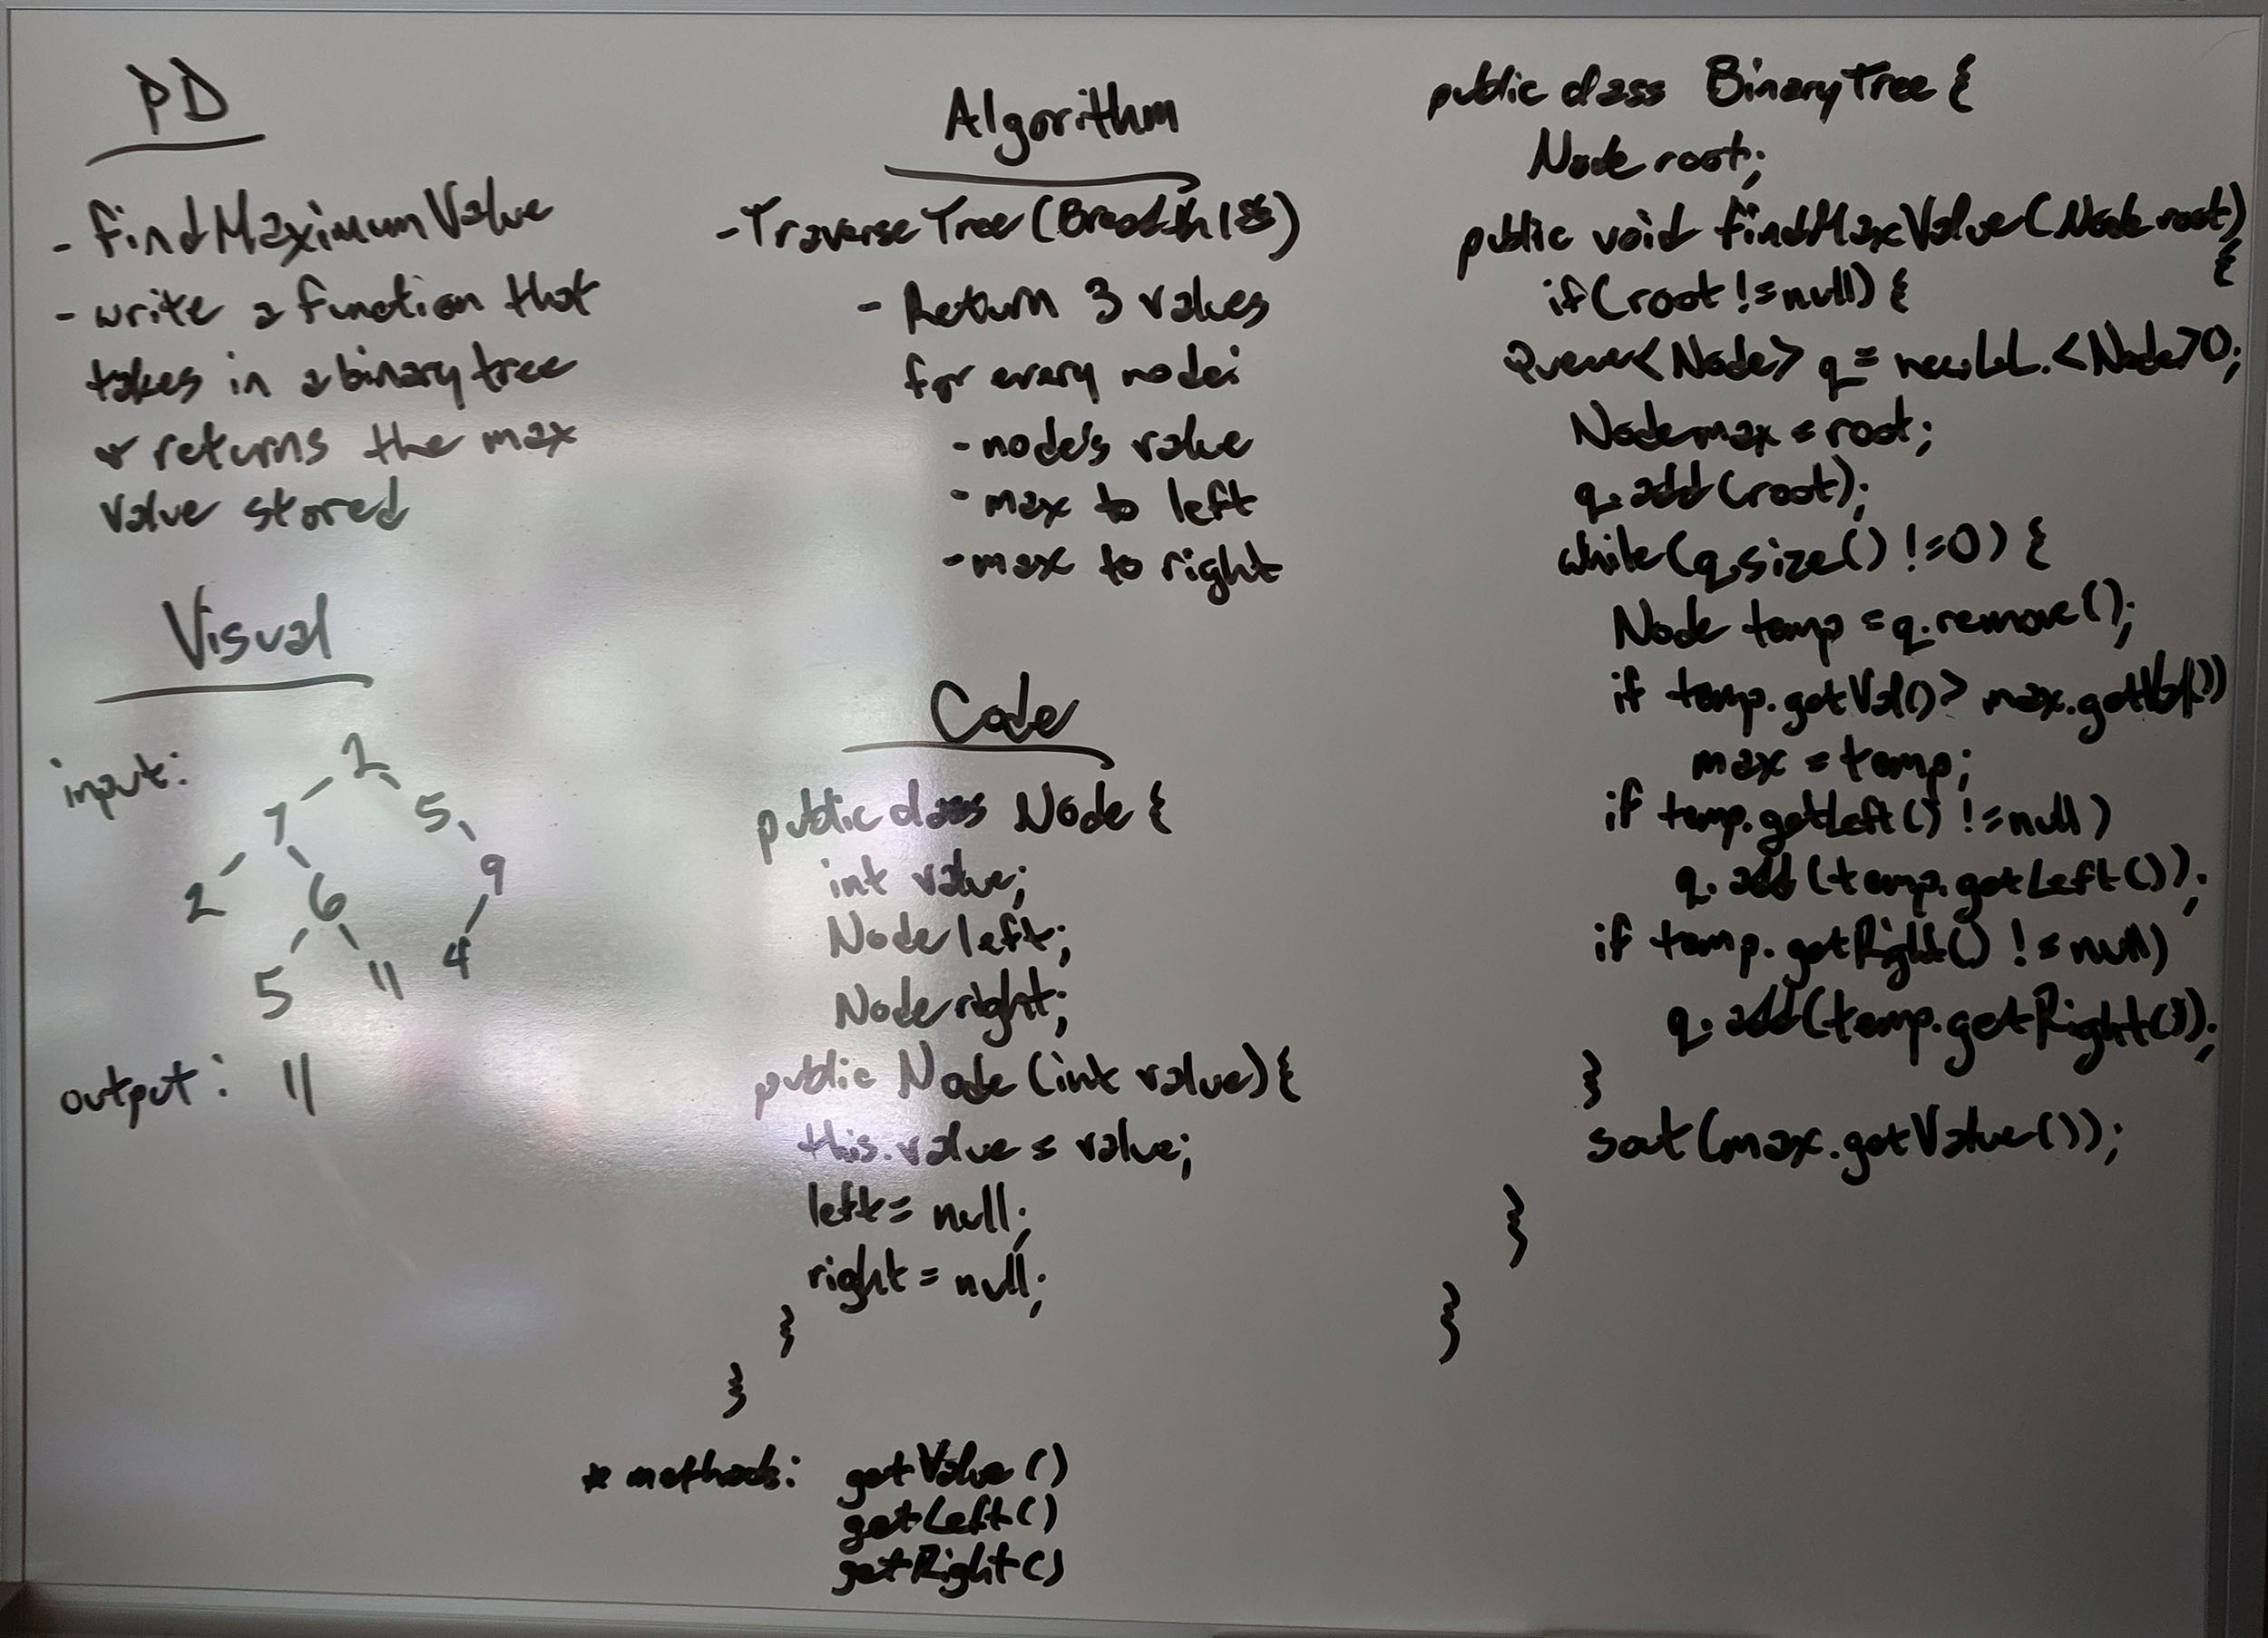 PD
- findMaximumValue
- write a function that
takes in a binary tree
& returns the max
value stored
Visual
input:
2
7 5
2 6 9
5 11 4
output: 11
Algorithm
- Traverse Tree (Breadth 1st)
- Return 3 values
for every node:
- node's value
- max to left
- max to right
Code
public class Node {
int value;
Node left;
Node right;
public Node (int value) {
this.value = value;
left = null;
right = null;
}
}
* methods: getValue ()
getLeft ()
getRight ()
public class BinaryTree {
Node root;
public void findMaxValue (Node root)
{
if (root != null) {
Queue<Node> q = new LL.<Node>();
Node max = root;
q.add (root);
while (q.size () != 0) {
Node temp = q.remove ();
if temp.getVal() > max.getVal())
max = temp;
if temp.getLeft () != null)
q.add (temp.getLeft ());
if temp.getRight () != null)
q.add (temp.getRight ());
}
sout (max.getValue ());
}
}